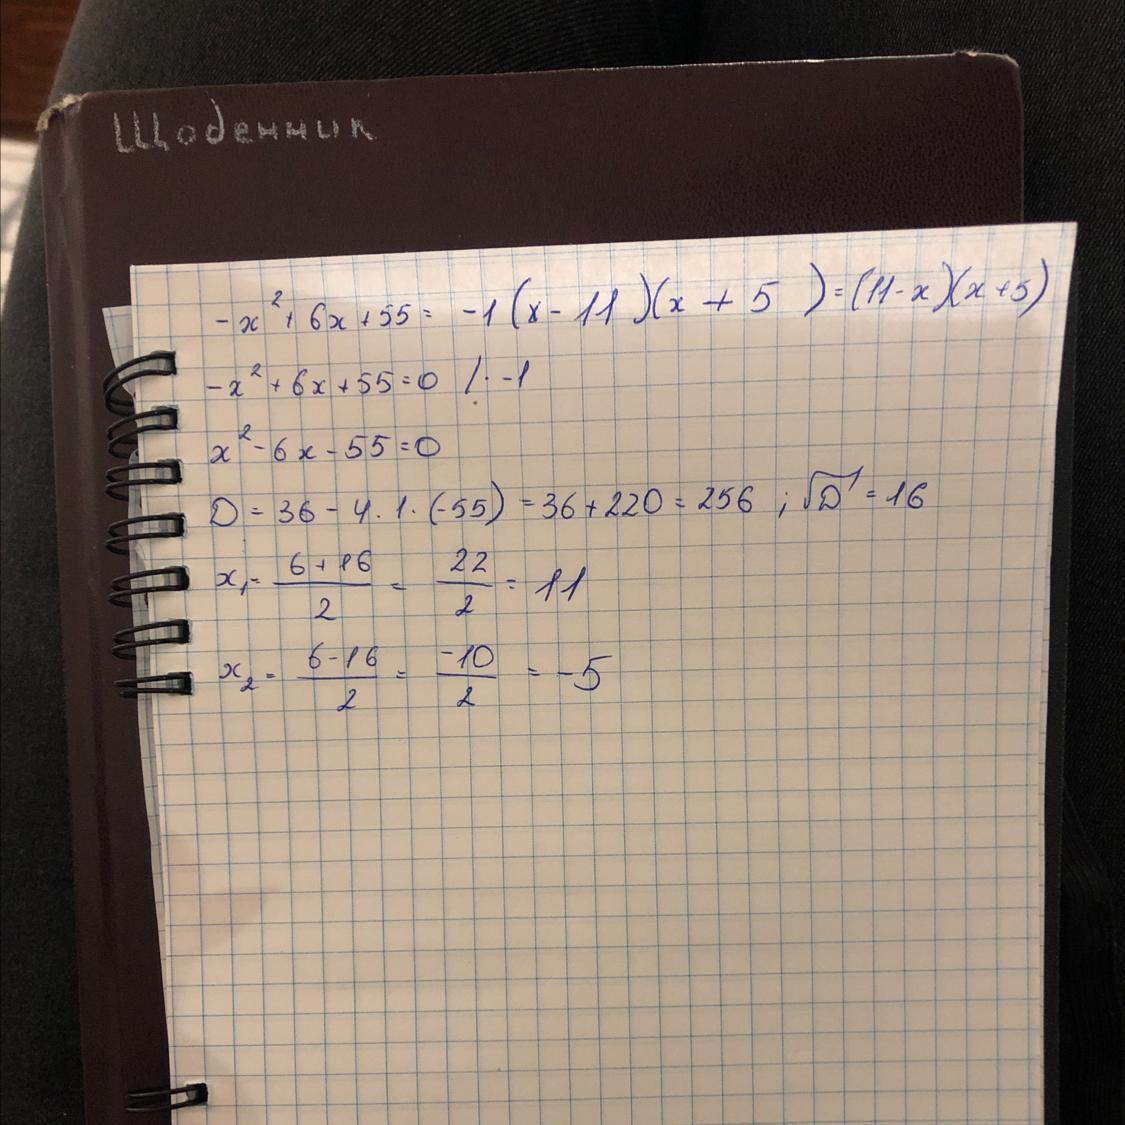 Щоденник
-x²+6x+55= -1(x-11)(x+5)=(11-x)(x+5)
-x²+6x+55=0 /·-1
x²-6x-55=0
D=36-4·1·(-55)=36+220=256 ; √D=16
x₁=(6+16)/2=22/2=11
x₂=(6-16)/2=-10/2=-5